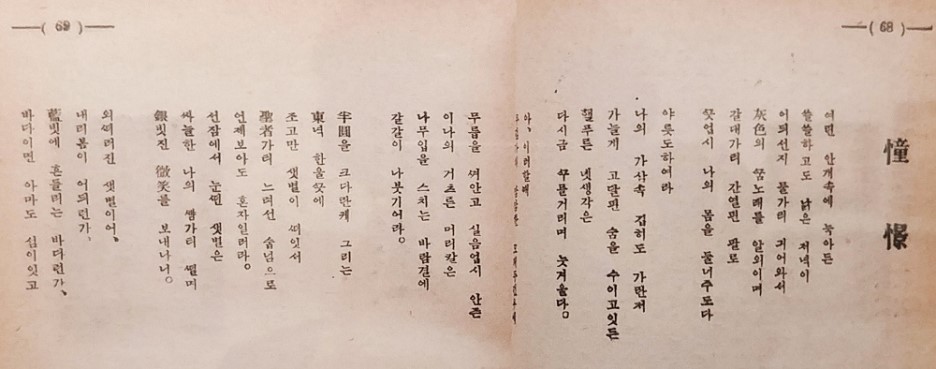 ( 68 )
憧憬
여린 안개속에 녹아든
쓸쓸하고도 낡은 저녁이
어듸선지 물가티 긔어와서
灰色의 꿈노래를 알외이며
갈대가티 간열핀 팔로
끗업시 나의 몸을 둘너주도다
야릇도하여라
나의 가삼속 깁히도 가란저
가늘게 고달핀 숨을 수이고잇든
푸른 녯생각은
다시금 꾸물거리며 늣겨울다。
아、이러할때
( 69 )
무릅을 껴안고 실음업시 안즌
이나의 거츠른 머리칼은
나무입을 스치는 바람결에
갈갈이 나붓기어라。
半圓을 크다란케 그리는
東녁 한울끗에
조고만 샛별이 떠잇서
聖者가티 느려선 숩넘으로
언제보아도 혼자일러라。
선잠에서 눈뜬 샛별은
싸늘한 나의 뺨가티 떨며
銀빗진 微笑를 보내나니。
외떠러진 샛별이어、
내려봄이 어듸런가、
藍빗에 흔들리는 바다런가、
바다이면 아마도 섬이잇고